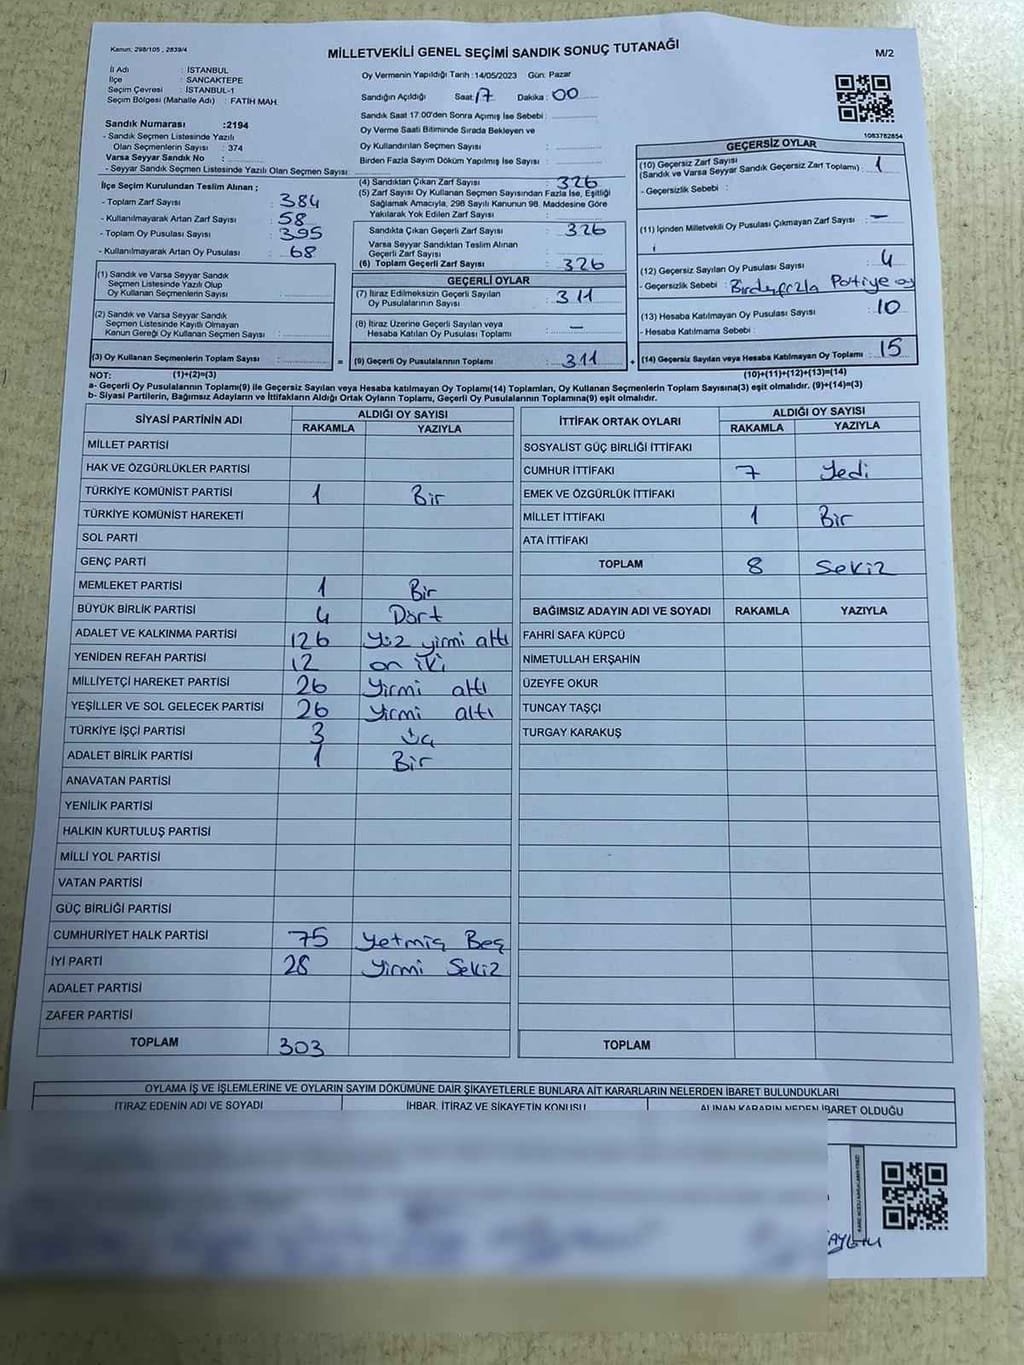 Kanun: 298/105 , 2839/4
MİLLETVEKİLİ GENEL SEÇİMİ SANDIK SONUÇ TUTANAĞI
M/2
İl Adı : İSTANBUL
İlçe : SANCAKTEPE
Seçim Çevresi : İSTANBUL-1
Seçim Bölgesi (Mahalle Adı) : FATİH MAH.
Sandık Numarası :2194
- Sandık Seçmen Listesinde Yazılı
Olan Seçmenlerin Sayısı : 374
Varsa Seyyar Sandık No :
- Seyyar Sandık Seçmen Listesinde Yazılı Olan Seçmen Sayısı :
Oy Vermenin Yapıldığı Tarih :14/05/2023 Gün: Pazar
Sandığın Açıldığı Saat: 17 Dakika : 00
Sandık Saat 17.00'den Sonra Açımış İse Sebebi :
Oy Verme Saati Bitiminde Sırada Bekleyen ve
Oy Kullandırılan Seçmen Sayısı :
Birden Fazla Sayım Döküm Yapılmış İse Sayısı :
1083782854
İlçe Seçim Kurulundan Teslim Alınan ;
- Toplam Zarf Sayısı : 384
- Kullanılmayarak Artan Zarf Sayısı : 58
- Toplam Oy Pusulası Sayısı : 395
- Kullanılmayarak Artan Oy Pusulası : 68
(1) Sandık ve Varsa Seyyar Sandık
Seçmen Listesinde Yazılı Olup
Oy Kullanan Seçmenlerin Sayısı :
(2) Sandık ve Varsa Seyyar Sandık
Seçmen Listesinde Kayıtlı Olmayan
Kanun Gereği Oy Kullanan Seçmen Sayısı :
(3) Oy Kullanan Seçmenlerin Toplam Sayısı :
(4) Sandıktan Çıkan Zarf Sayısı : 326
(5) Zarf Sayısı Oy Kullanan Seçmen Sayısından Fazla İse, Eşitliği
Sağlamak Amacıyla, 298 Sayılı Kanunun 98. Maddesine Göre
Yakılarak Yok Edilen Zarf Sayısı :
Sandıkta Çıkan Geçerli Zarf Sayısı : 326
Varsa Seyyar Sandıktan Teslim Alınan
Geçerli Zarf Sayısı :
(6) Toplam Geçerli Zarf Sayısı : 326
GEÇERLİ OYLAR
(7) İtiraz Edilmeksizin Geçerli Sayılan
Oy Pusulasının Sayısı : 311
(8) İtiraz Üzerine Geçerli Sayılan veya
Hesaba Katılan Oy Pusulası Toplamı : –
= (9) Geçerli Oy Pusulalarının Toplamı : 311
GEÇERSİZ OYLAR
(10) Geçersiz Zarf Sayısı
(Sandık ve Varsa Seyyar Sandık Geçersiz Zarf Toplamı) : 1
- Geçersizlik Sebebi :
(11) İçinden Milletvekili Oy Pusulası Çıkmayan Zarf Sayısı : –
(12) Geçersiz Sayılan Oy Pusulası Sayısı : 4
- Geçersizlik Sebebi : Birdenfazla Partiye oy
(13) Hesaba Katılmayan Oy Pusulası Sayısı : 10
- Hesaba Katılmama Sebebi :
+ (14) Geçersiz Sayılan veya Hesaba Katılmayan Oy Toplamı : 15
NOT: (1)+(2)=(3) (10)+(11)+(12)+(13)=(14)
a- Geçerli Oy Pusulalarının Toplamı(9) ile Geçersiz Sayılan veya Hesaba katılmayan Oy Toplamı(14) Toplamları, Oy Kullanan Seçmenlerin Toplam Sayısına(3) eşit olmalıdır. (9)+(14)=(3)
b- Siyasi Partilerin, Bağımsız Adayların ve İttifakların Aldığı Ortak Oyların Toplamı, Geçerli Oy Pusulalarının Toplamına(9) eşit olmalıdır.
SİYASİ PARTİNİN ADI ALDIĞI OY SAYISI
RAKAMLA YAZIYLA
MİLLET PARTİSİ
HAK VE ÖZGÜRLÜKLER PARTİSİ
TÜRKİYE KOMÜNİST PARTİSİ 1 Bir
TÜRKİYE KOMÜNİST HAREKETİ
SOL PARTİ
GENÇ PARTİ
MEMLEKET PARTİSİ 1 Bir
BÜYÜK BİRLİK PARTİSİ 4 Dört
ADALET VE KALKINMA PARTİSİ 126 Yüz yirmi altı
YENİDEN REFAH PARTİSİ 12 on iki
MİLLİYETÇİ HAREKET PARTİSİ 26 Yirmi altı
YEŞİLLER VE SOL GELECEK PARTİSİ 26 Yirmi altı
TÜRKİYE İŞÇİ PARTİSİ 3 Üç
ADALET BİRLİK PARTİSİ 1 Bir
ANAVATAN PARTİSİ
YENİLİK PARTİSİ
HALKIN KURTULUŞ PARTİSİ
MİLLİ YOL PARTİSİ
VATAN PARTİSİ
GÜÇ BİRLİĞİ PARTİSİ
CUMHURİYET HALK PARTİSİ 75 Yetmiş Beş
İYİ PARTİ 28 Yirmi Sekiz
ADALET PARTİSİ
ZAFER PARTİSİ
TOPLAM 303
İTTİFAK ORTAK OYLARI ALDIĞI OY SAYISI
RAKAMLA YAZIYLA
SOSYALİST GÜÇ BİRLİĞİ İTTİFAKI
CUMHUR İTTİFAKI 7 Yedi
EMEK VE ÖZGÜRLÜK İTTİFAKI
MİLLET İTTİFAKI 1 Bir
ATA İTTİFAKI
TOPLAM 8 Sekiz
BAĞIMSIZ ADAYIN ADI VE SOYADI RAKAMLA YAZIYLA
FAHRİ SAFA KÜPCÜ
NİMETULLAH ERŞAHİN
ÜZEYFE OKUR
TUNCAY TAŞÇI
TURGAY KARAKUŞ
TOPLAM
OYLAMA İŞ VE İŞLEMLERİNE VE OYLARIN SAYIM DÖKÜMÜNE DAİR ŞİKAYETLERLE BUNLARA AİT KARARLARIN NELERDEN İBARET BULUNDUKLARI
İTİRAZ EDENİN ADI VE SOYADI İHBAR, İTİRAZ VE ŞİKAYETİN KONUSU ALINAN KARARIN NEDEN İBARET OLDUĞU